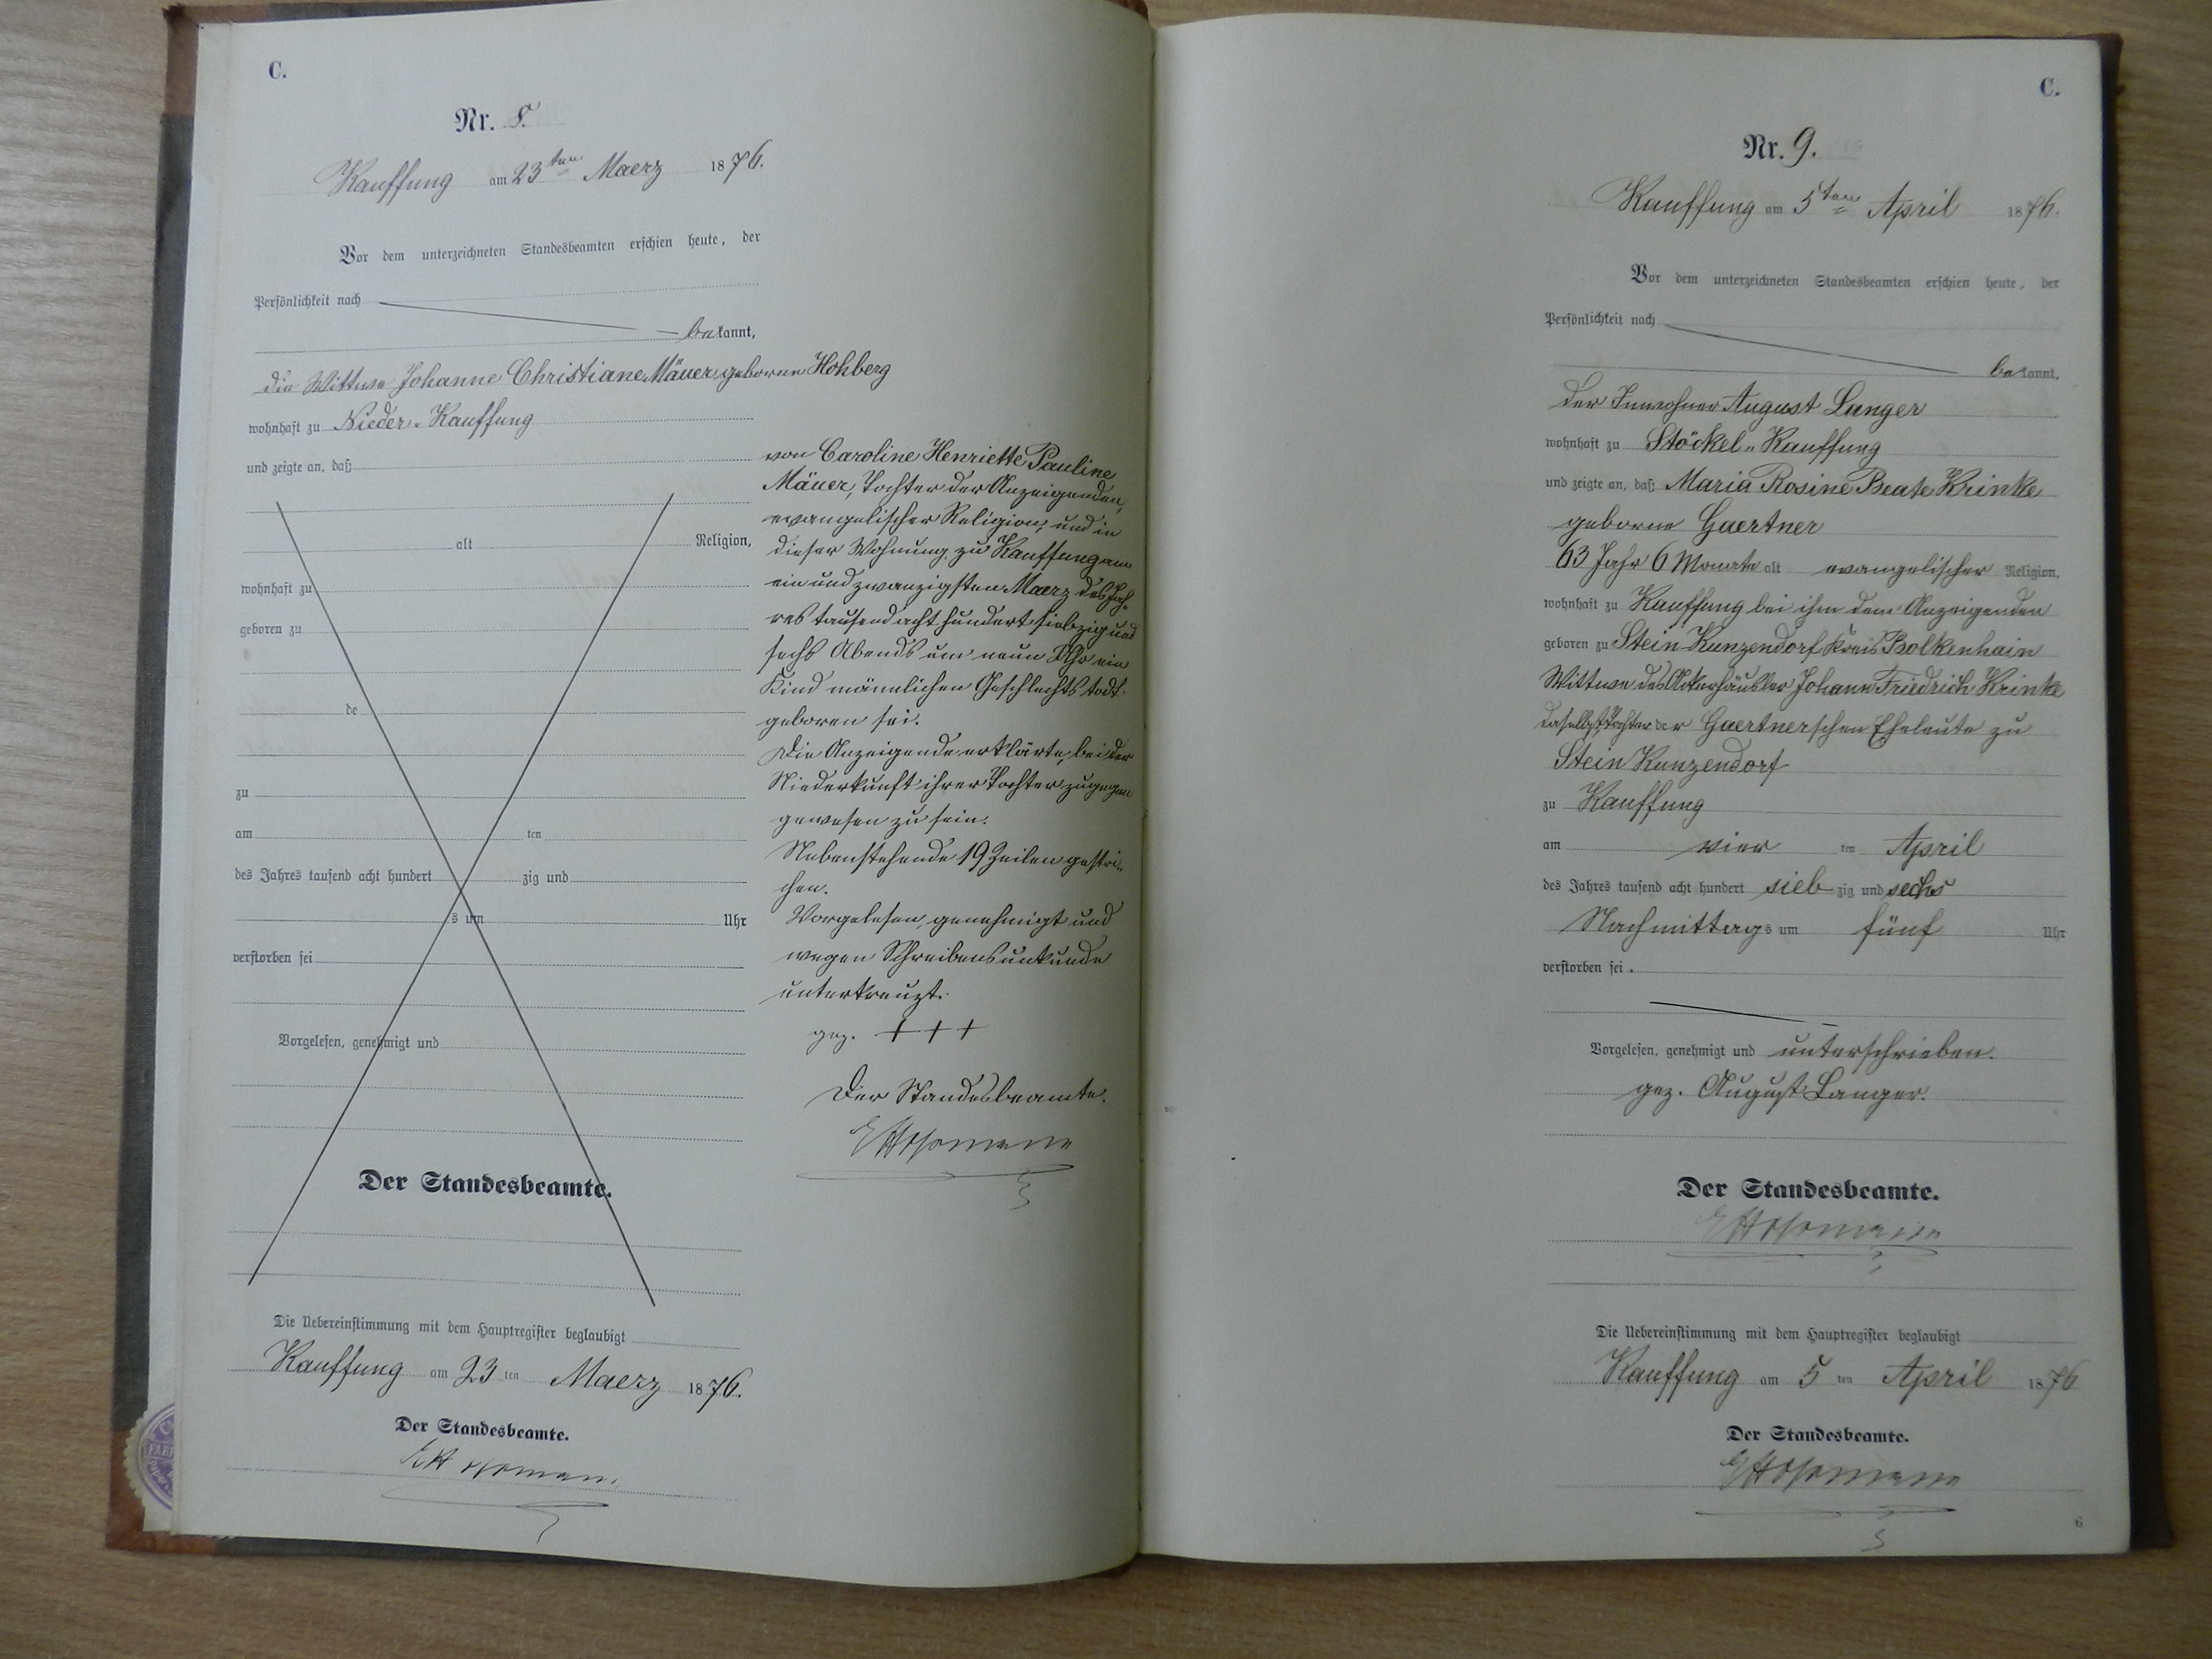 C.
Nr. 8.
Kauffung am 23ten Maerz 1876.
Vor dem unterzeichneten Standesbeamten erschien heute, der
Persönlichkeit nach
bekannt,
die Wittwe Johanne Christiane Mäuer geborne Hohberg
wohnhaft zu Nieder-Kauffung
und zeigte an, daß
alt Religion,
wohnhaft zu
geboren zu
de
zu
am ten
des Jahres tausend acht hundert zig und
s um Uhr
verstorben sei
Vorgelesen, genehmigt und
Der Standesbeamte.
von Caroline Henriette Pauline
Mäuer, Tochter der Anzeigenden,
evangelischer Religion, und in
dieser Wohnung zu Kauffung am
ein und zwanzigsten Maerz des Jah-
res tausend acht hundert siebzig und
sechs Abends um neun Uhr ein
Kind männlichen Geschlechts todt
geboren sei.
Die Anzeigende erklärte, bei der
Niederkunft ihrer Tochter zugegen
gewesen zu sein.
Nebenstehende 19 Zeilen gestri-
chen.
Vorgelesen, genehmigt und
wegen Schreibensunkunde
unterkreuzt.
gez. + + +
Der Standesbeamte.
Die Uebereinstimmung mit dem Hauptregister beglaubigt
Kauffung am 23 ten Maerz 1876.
Der Standesbeamte.
C.
Nr. 9.
Kauffung am 5ten April 1876.
Vor dem unterzeichneten Standesbeamten erschien heute, der
Persönlichkeit nach
bekannt,
der Inwohner August Langer
wohnhaft zu Stöckel-Kauffung
und zeigte an, daß Maria Rosine Beate Krinke
geborne Gaertner
63 Jahr 6 Monate alt evangelischer Religion,
wohnhaft zu Kauffung bei ihm dem Anzeigenden
geboren zu Stein Kunzendorf Kreis Bolkenhain
Wittwe des Ackerhäusler Johann Friedrich Krinke
daselbst, Tochter der Gaertnerschen Eheleute zu
Stein Kunzendorf
zu Kauffung
am vier ten April
des Jahres tausend acht hundert sieb zig und sechs
Nachmittags um fünf Uhr
verstorben sei.
Vorgelesen, genehmigt und unterschrieben.
gez. August Langer.
Der Standesbeamte.
Die Uebereinstimmung mit dem Hauptregister beglaubigt
Kauffung am 5 ten April 1876
Der Standesbeamte.
6